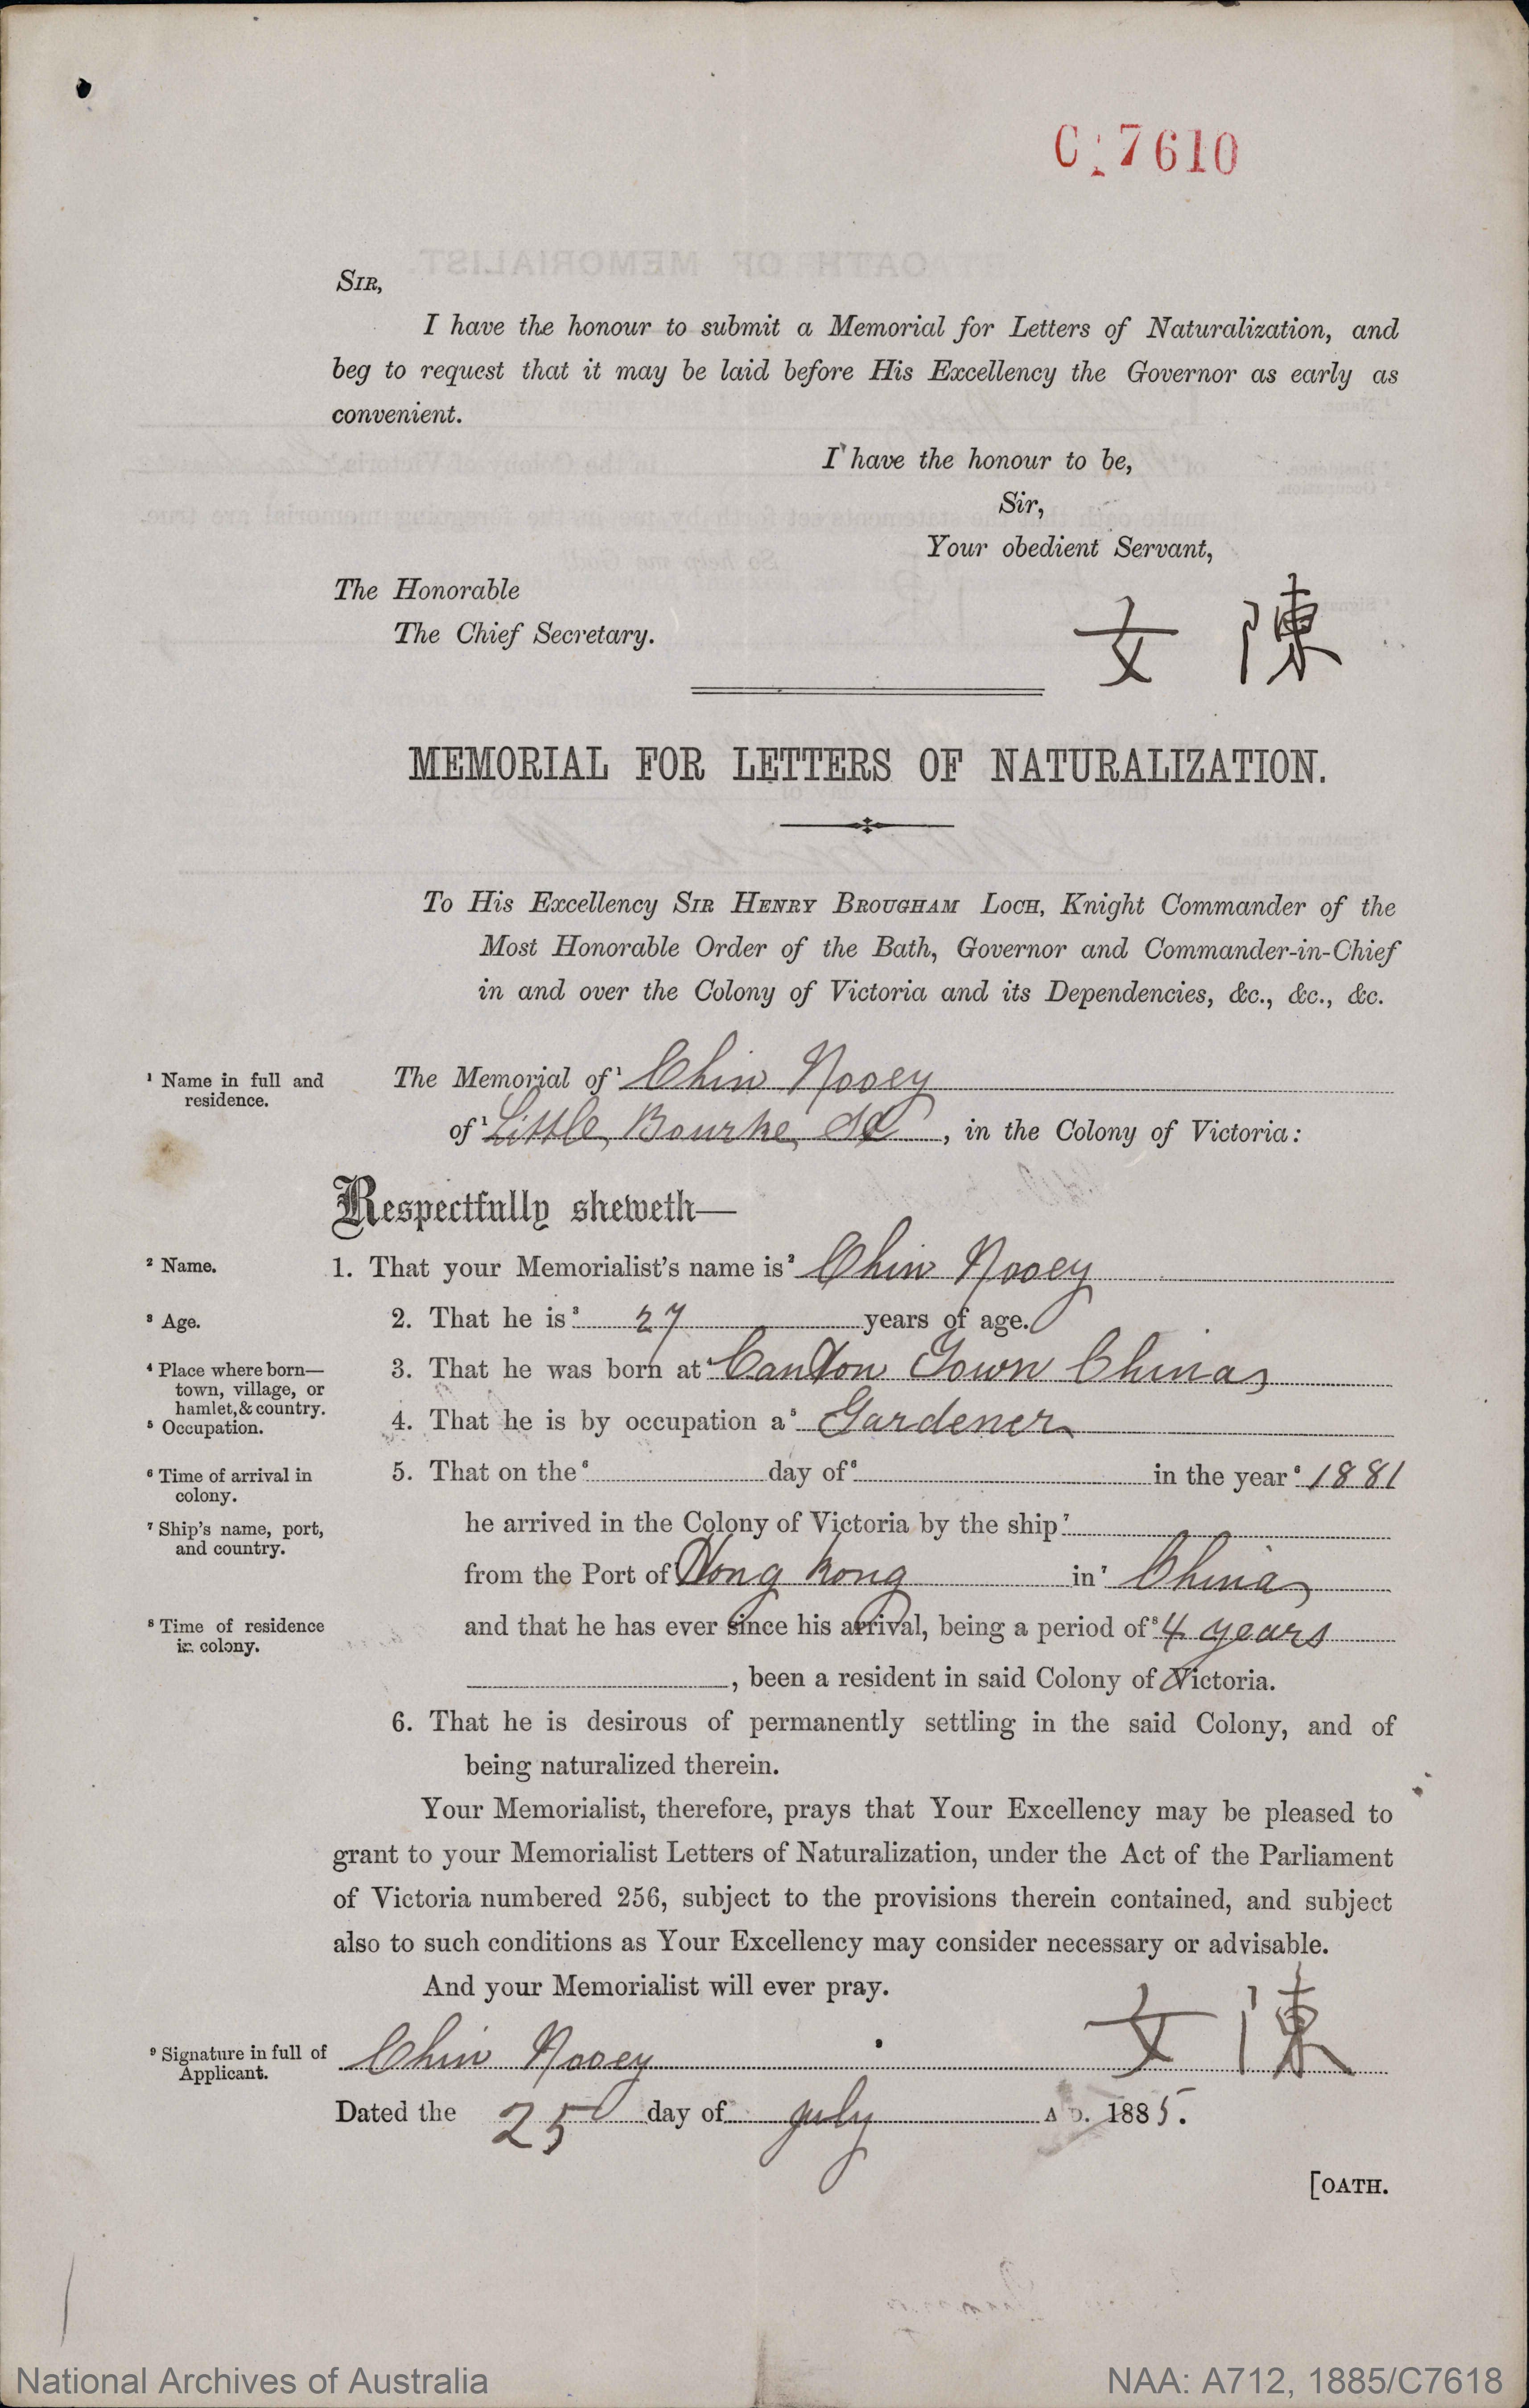 C.7610
SIR,
I have the honour to submit a Memorial for Letters of Naturalization, and
beg to request that it may be laid before His Excellency the Governor as early as
convenient.
I have the honour to be,
Sir,
Your obedient Servant,
The Honorable
The Chief Secretary.
女 陳
MEMORIAL FOR LETTERS OF NATURALIZATION.
To His Excellency SIR HENRY BROUGHAM LOCH, Knight Commander of the
Most Honorable Order of the Bath, Governor and Commander-in-Chief
in and over the Colony of Victoria and its Dependencies, &c., &c., &c.
¹ Name in full and
residence.
The Memorial of ¹ Chin Nooey
of ¹ Little Bourke St, in the Colony of Victoria:
Respectfully sheweth—
² Name.
1. That your Memorialist's name is ² Chin Nooey
³ Age.
2. That he is ³ 27 years of age.
⁴ Place where born—
town, village, or
hamlet, & country.
3. That he was born at ⁴ Canton Town China
⁵ Occupation.
4. That he is by occupation a ⁵ Gardener
⁶ Time of arrival in
colony.
5. That on the ⁶ day of ⁶ in the year ⁶ 1881
⁷ Ship's name, port,
and country.
he arrived in the Colony of Victoria by the ship ⁷
from the Port of Hong Kong in ⁷ China
⁸ Time of residence
in colony.
and that he has ever since his arrival, being a period of ⁸ 4 years
, been a resident in said Colony of Victoria.
6. That he is desirous of permanently settling in the said Colony, and of
being naturalized therein.
Your Memorialist, therefore, prays that Your Excellency may be pleased to
grant to your Memorialist Letters of Naturalization, under the Act of the Parliament
of Victoria numbered 256, subject to the provisions therein contained, and subject
also to such conditions as Your Excellency may consider necessary or advisable.
And your Memorialist will ever pray.
⁹ Signature in full of
Applicant.
Chin Nooey ⁹ 女 陳
Dated the 25 day of July A.D. 1885.
[OATH.
National Archives of Australia
NAA: A712, 1885/C7618